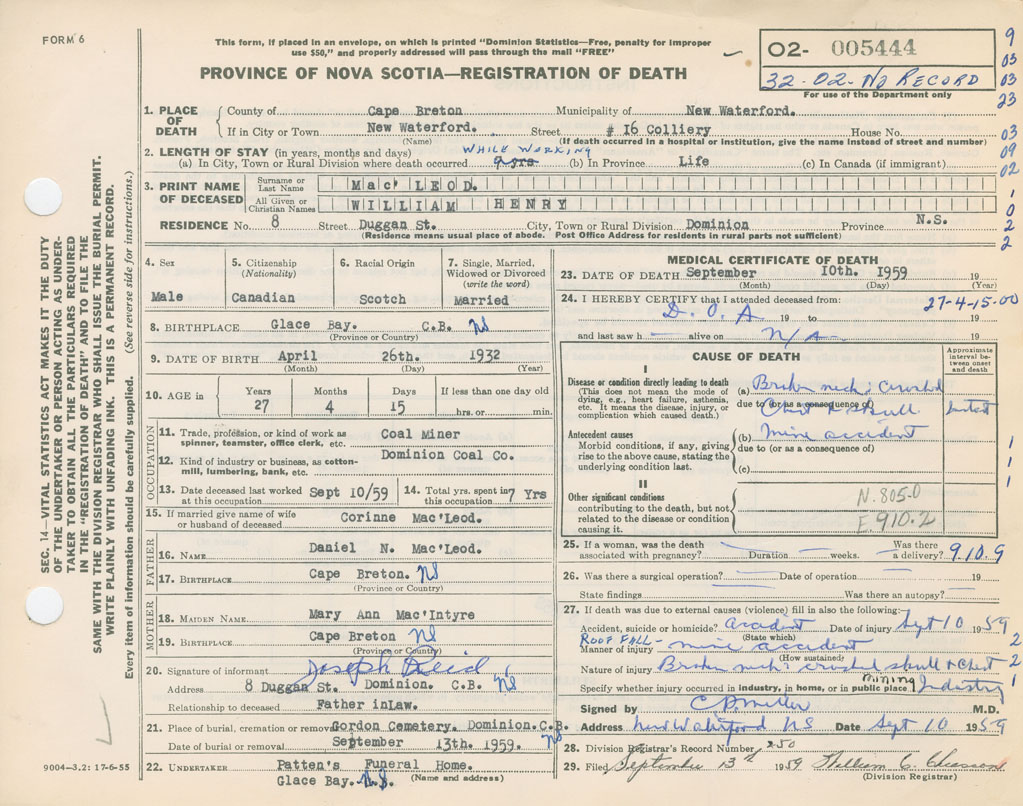 FORM 6
This form, if placed in an envelope, on which is printed "Dominion Statistics—Free, penalty for improper
use $50," and properly addressed will pass through the mail "FREE"
PROVINCE OF NOVA SCOTIA—REGISTRATION OF DEATH
02- 005444
32-02-No RECORD
For use of the Department only
9
03
03
23
03
09
02
1
0
2
2
1. PLACE OF DEATH County of Cape Breton Municipality of New Waterford.
If in City or Town New Waterford. Street # 16 Colliery House No.
(Name) (If death occurred in a hospital or institution, give the name instead of street and number)
2. LENGTH OF STAY (in years, months and days) WHILE WORKING
(a) In City, Town or Rural Division where death occurred (b) In Province Life (c) In Canada (if immigrant)
3. PRINT NAME OF DECEASED Surname or Last Name Mac' LEOD.
All Given or Christian Names WILLIAM HENRY
RESIDENCE No. 8 Street Duggan St. City, Town or Rural Division Dominion Province N.S.
(Residence means usual place of abode. Post Office Address for residents in rural parts not sufficient)
4. Sex 5. Citizenship (Nationality) 6. Racial Origin 7. Single, Married, Widowed or Divorced (write the word)
Male Canadian Scotch Married
8. BIRTHPLACE Glace Bay. C.B. NS
(Province or Country)
9. DATE OF BIRTH April 26th. 1932
(Month) (Day) (Year)
10. AGE in Years Months Days If less than one day old
27 4 15 hrs. or min.
OCCUPATION
11. Trade, profession, or kind of work as spinner, teamster, office clerk, etc. Coal Miner
12. Kind of industry or business, as cotton-mill, lumbering, bank, etc. Dominion Coal Co.
13. Date deceased last worked at this occupation Sept 10/59 14. Total yrs. spent in this occupation 7 Yrs
15. If married give name of wife or husband of deceased Corinne Mac'Leod.
FATHER
16. NAME Daniel N. Mac'Leod.
17. BIRTHPLACE Cape Breton. NS
(Province or Country)
MOTHER
18. MAIDEN NAME Mary Ann Mac'Intyre
19. BIRTHPLACE Cape Breton NS
(Province or Country)
20. Signature of informant Joseph Reid
Address 8 Duggan St. Dominion. C.B. NS
Relationship to deceased Father inLaw.
21. Place of burial, cremation or removal Gordon Cemetery. Dominion.C.B. NS
Date of burial or removal September 13th. 1959.
22. UNDERTAKER Patten's Funeral Home.
Glace Bay. N.S. (Name and address)
MEDICAL CERTIFICATE OF DEATH
23. DATE OF DEATH September 10th. 1959 19
(Month) (Day) (Year)
24. I HEREBY CERTIFY that I attended deceased from: 27-4-15-00
D.O.A 19 to 19
and last saw h alive on N/A 19
CAUSE OF DEATH
Approximate interval between onset and death
I
Disease or condition directly leading to death
(This does not mean the mode of dying, e.g., heart failure, asthenia, etc. It means the disease, injury, or complication which caused death.)
(a) Broken neck; Crushed
due to (or as a consequence of)
Chest & Skull.
Antecedent causes
Morbid conditions, if any, giving rise to the above cause, stating the underlying condition last.
(b) mine accident
due to (or as a consequence of)
(c)
II
Other significant conditions
contributing to the death, but not related to the disease or condition causing it.
N. 805.0
E. 910.2
1
1
1
25. If a woman, was the death associated with pregnancy? Duration weeks. Was there a delivery? 9.10.9
26. Was there a surgical operation? Date of operation 19
State findings Was there an autopsy?
27. If death was due to external causes (violence) fill in also the following:
Accident, suicide or homicide? accident Date of injury Sept 10 1959
(State which)
ROOF FALL-
Manner of injury mine accident 2
(How sustained)
Nature of injury Broken neck; crushed skull & chest 2
Specify whether injury occurred in industry, in home, or in public place mining Industry 1
Signed by C B Miller M.D.
Address New Waterford NS Date Sept 10 1959
28. Division Registrar's Record Number 250
29. Filed September 13th 1959 William C. Chiasson
(Division Registrar)
SEC. 14—VITAL STATISTICS ACT MAKES IT THE DUTY
OF THE UNDERTAKER OR PERSON ACTING AS UNDER-
TAKER TO OBTAIN ALL THE PARTICULARS REQUIRED
IN THE "REGISTRATION OF DEATH" AND TO FILE THE
SAME WITH THE DIVISION REGISTRAR WHO SHALL ISSUE THE BURIAL PERMIT.
WRITE PLAINLY WITH UNFADING INK. THIS IS A PERMANENT RECORD.
Every item of information should be carefully supplied. (See reverse side for instructions.)
9004—3.2: 17-6-55